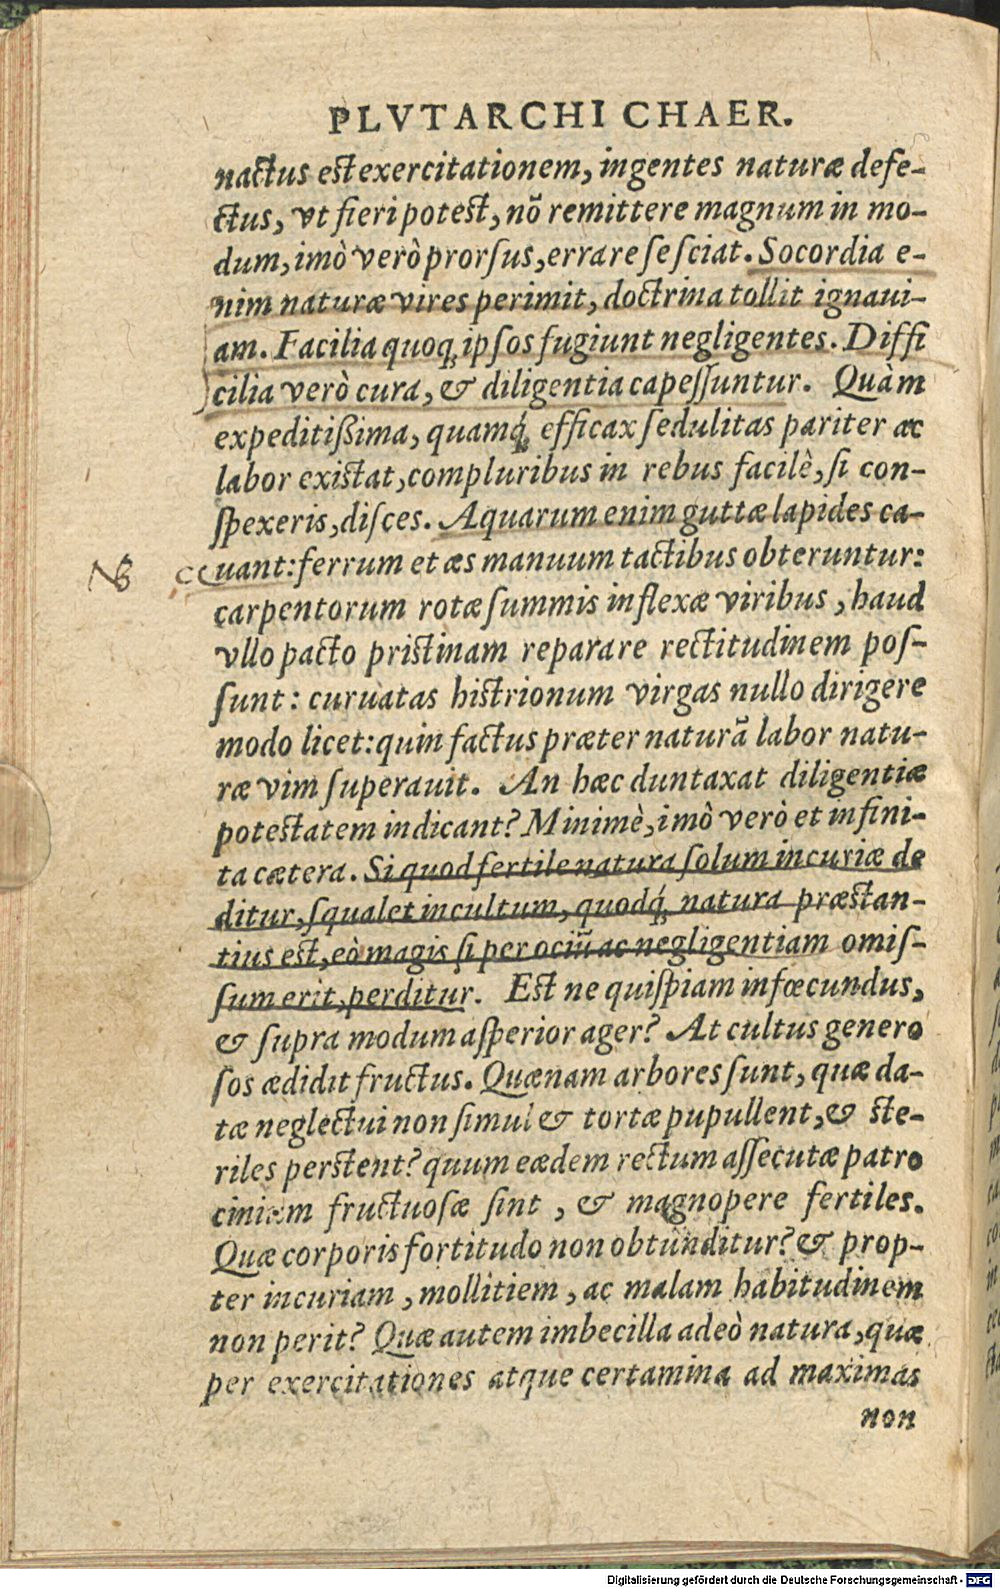 PLVTARCHI CHAER.
nactus est exercitationem, ingentes naturæ defe-
ctus, vt fieri potest, nõ remittere magnum in mo-
dum, imò verò prorsus, errare se sciat. Socordia e-
nim naturæ vires perimit, doctrina tollit ignaui-
am. Facilia quoq; ipsos fugiunt negligentes. Diffi
cilia verò cura, & diligentia capessuntur. Quàm
expeditißima, quamq́; efficax sedulitas pariter ac
labor existat, compluribus in rebus facilè, si con-
spexeris, disces. Aquarum enim guttæ lapides ca-
NB uant: ferrum et æs manuum tactibus obteruntur:
carpentorum rotæ summis inflexæ viribus, haud
vllo pacto pristinam reparare rectitudinem pos-
sunt: curuatas histrionum virgas nullo dirigere
modo licet: quin factus præter naturã labor natu-
ræ vim superauit. An hæc duntaxat diligentiæ
potestatem indicant? Minimè, imò verò et infini-
ta cætera. Si quod fertile natura solum incuriæ de
ditur, squalet incultum, quodq́; natura præstan-
tius est, eò magis si per ociũ ac negligentiam omis-
sum erit, perditur. Est ne quispiam infœcundus,
& supra modum asperior ager? At cultus genero
sos ædidit fructus. Quænam arbores sunt, quæ da-
tæ neglectui non simul & tortæ pupullent, & ste-
riles perstent? quum eædem rectum assecutæ patro
cinium fructuosæ sint, & magnopere fertiles.
Quæ corporis fortitudo non obtunditur? & prop-
ter incuriam, mollitiem, ac malam habitudinem
non perit? Quæ autem imbecilla adeò natura, quæ
per exercitationes atque certamina ad maximas
non
Digitalisierung gefördert durch die Deutsche Forschungsgemeinschaft - DFG